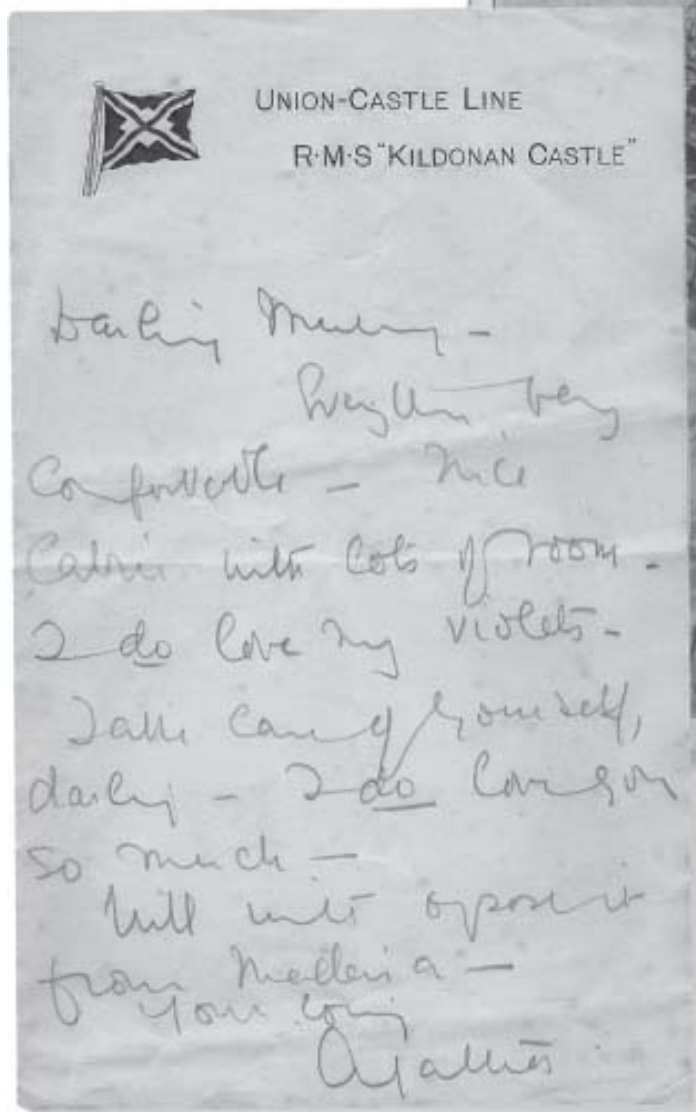 UNION-CASTLE LINE
R·M·S "KILDONAN CASTLE"
Darling Mummy –
Everything very
Comfortable – Nice
Cabin with lots of room –
I do love my violets –
Take care of yourself,
darling – I do love you
so much –
Will write & post it
from Madeira –
Your loving
Agatha